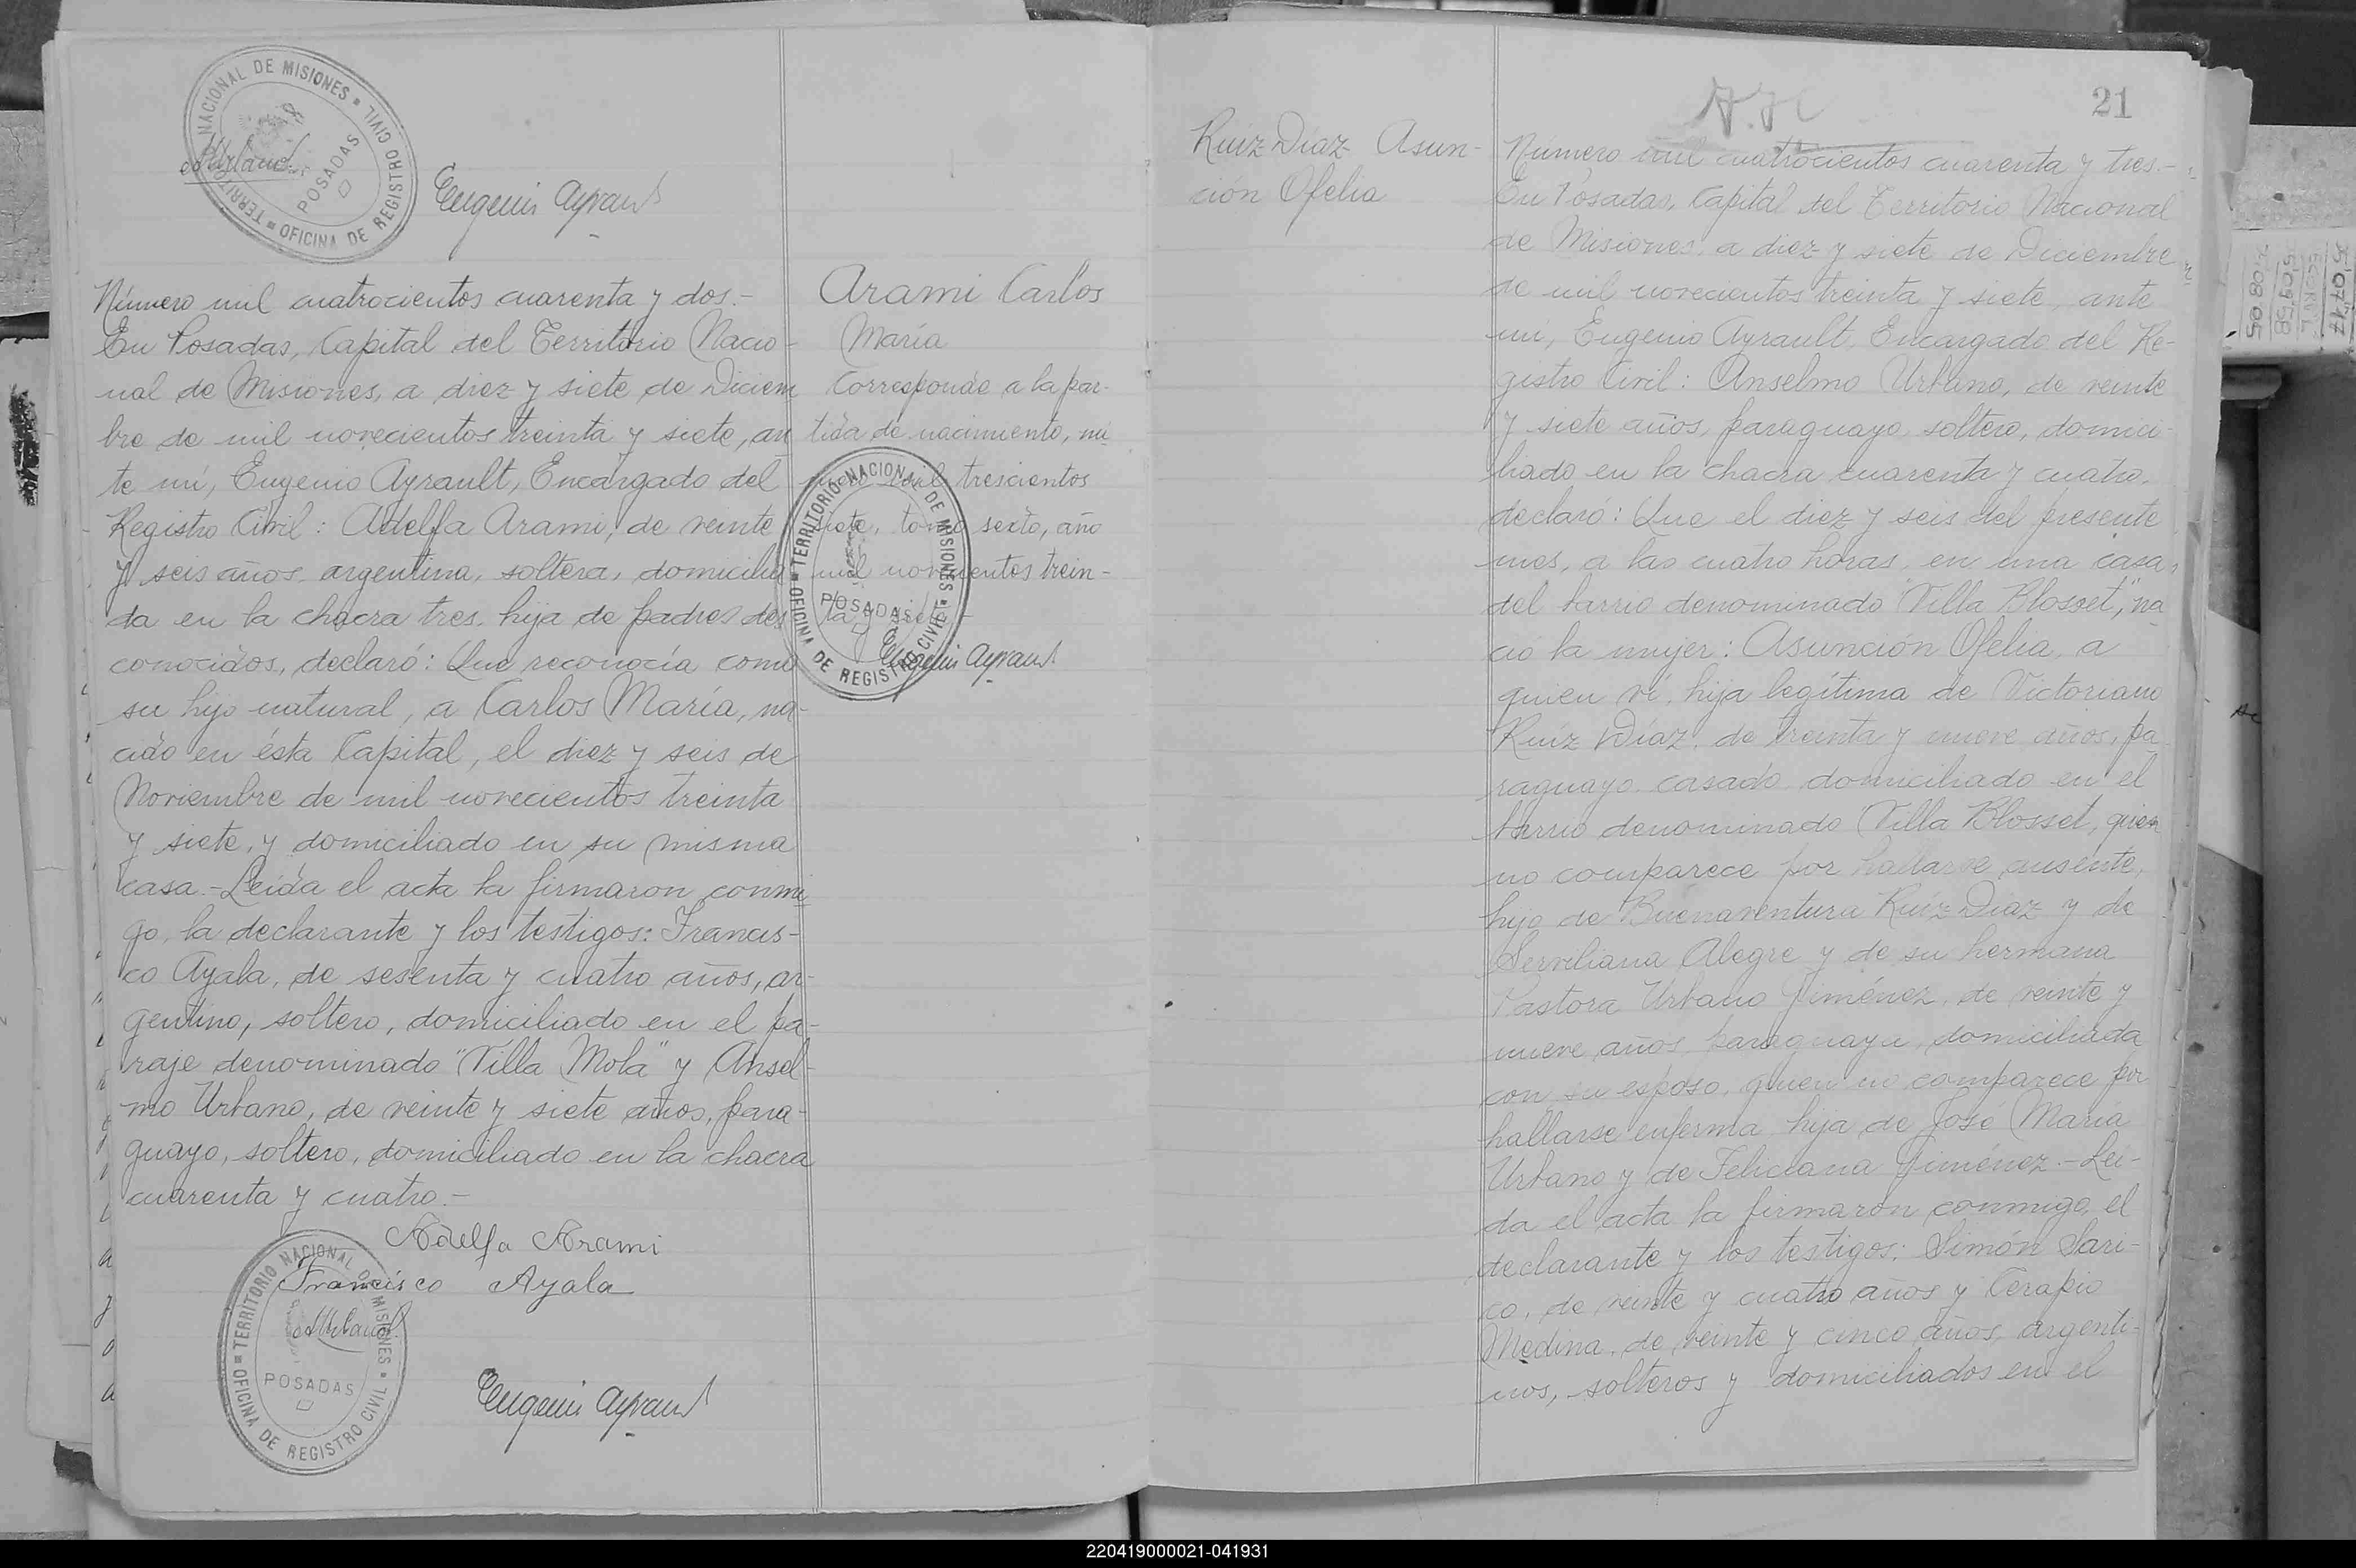 TERRITORIO NACIONAL DE MISIONES
OFICINA DE REGISTRO CIVIL
POSADAS
Eugenio Ayrault
Número mil cuatrocientos cuarenta y dos.-
En Posadas, Capital del Territorio Nacio-
nal de Misiones, a diez y siete de Diciem
bre de mil novecientos treinta y siete, an
te mí, Eugenio Ayrault, Encargado del
Registro Civil: Adelfa Arami, de veinte
y seis años, argentina, soltera, domicilia-
da en la chacra tres, hija de padres des
conocidos, declaró: Que reconocía como
su hijo natural, a Carlos María, na-
cido en ésta Capital, el diez y seis de
Noviembre de mil novecientos treinta
y siete, y domiciliado en su misma
casa.-Leída el acta la firmaron conmi
go, la declarante y los testigos: Francis-
co Ayala, de sesenta y cuatro años, ar-
gentino, soltero, domiciliado en el pa-
raje denominado "Villa Mola" y Ansel-
mo Urbano, de veinte y siete años, para-
guayo, soltero, domiciliado en la chacra
cuarenta y cuatro.-
Adelfa Arami
Francisco Ayala
AUrbano
TERRITORIO NACIONAL DE MISIONES
OFICINA DE REGISTRO CIVIL
POSADAS
Eugenio Ayrault
Arami Carlos
María
Corresponde a la par-
tida de nacimiento, nú
mero mil trescientos
siete, tomo sexto, año
mil novecientos trein-
ta y siete.-
Eugenio Ayrault
TERRITORIO NACIONAL DE MISIONES
OFICINA DE REGISTRO CIVIL
POSADAS
21
Ruiz Díaz Asun-
ción Ofelia
Número mil cuatrocientos cuarenta y tres.-
En Posadas, Capital del Territorio Nacional
de Misiones, a diez y siete de Diciembre
de mil novecientos treinta y siete, ante
mí, Eugenio Ayrault, Encargado del Re-
gistro Civil: Anselmo Urbano, de veinte
y siete años, paraguayo, soltero, domici-
liado en la chacra cuarenta y cuatro,
declaró: Que el diez y seis del presente
mes, a las cuatro horas, en una casa
del barrio denominado "Villa Blosset", na
ció la mujer: Asunción Ofelia, a
quien ví, hija legítima de Victoriano
Ruiz Díaz, de treinta y nueve años, pa
raguayo, casado, domiciliado en el
barrio denominado "Villa Blosset, quien
no comparece por hallarse ausente,
hijo de Buenaventura Ruiz Díaz y de
Serviliana Alegre y de su hermana
Pastora Urbano Jiménez, de veinte y
nueve años, paraguaya, domiciliada
con su esposo, quien no comparece por
hallarse enferma, hija de José María
Urbano y de Feliciana Jiménez.-Leí-
da el acta la firmaron conmigo, el
declarante y los testigos: Simón Sari-
co, de veinte y cuatro años y Terapio
Medina, de veinte y cinco años, argenti-
nos, solteros y domiciliados en el
220419000021-041931